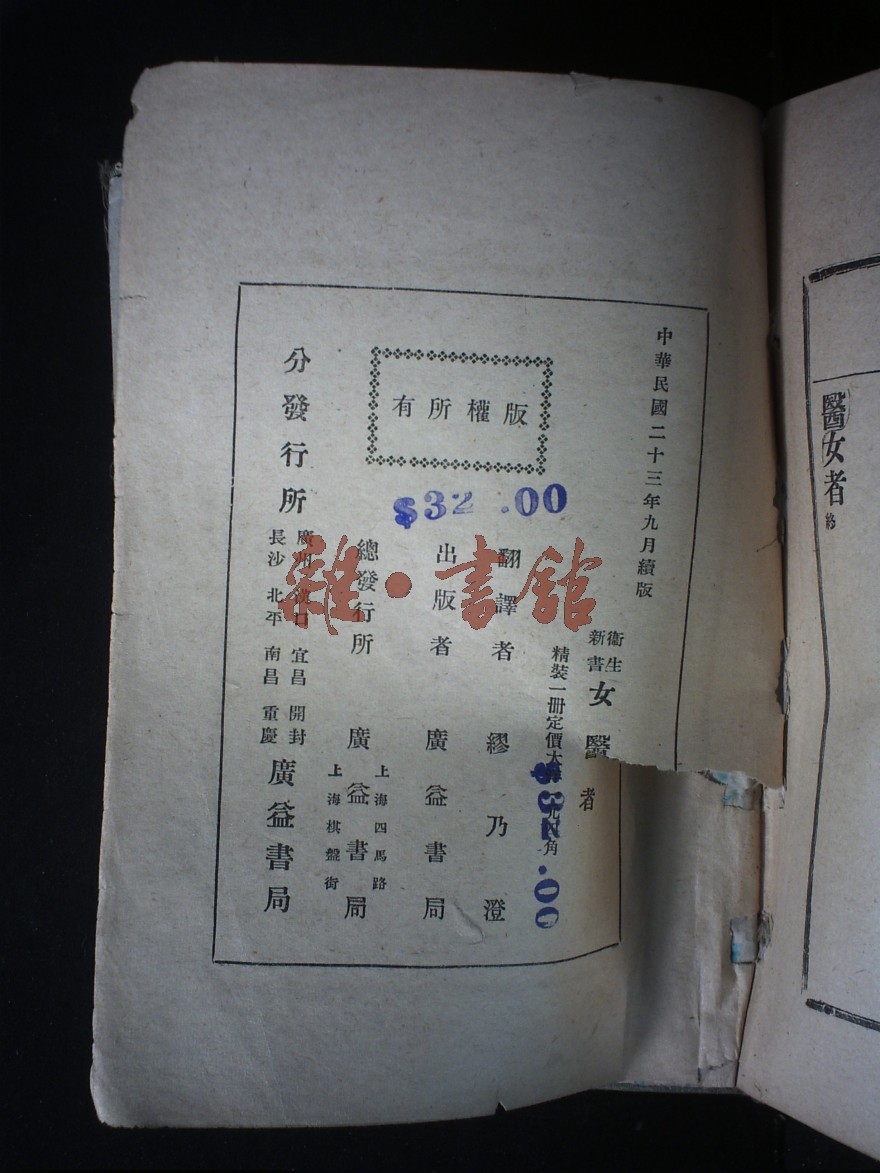 醫女者 終
中華民國二十三年九月續版
衛生
新書
女醫者
精裝一冊定價大
元四角
版權所有
$32.00
$32.00
翻譯者 繆乃澄
出版者 廣益書局
總發行所 廣益書局
上海四馬路
上海棋盤街
分發行所
廣州 漢口 宜昌 開封
長沙 北平 南昌 重慶
廣益書局
雜·書館